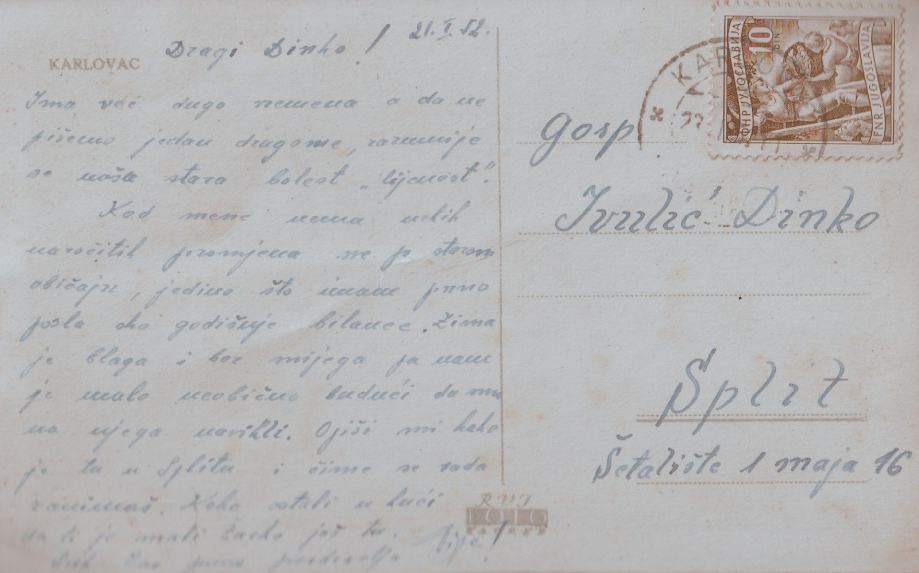 KARLOVAC
21. I. 52.
Dragi Dinko!
Ima već dugo vremena a da ne
pišemo jedan drugome, razumije
se naša stara bolest „lijenost".
Kod mene nema nekih
naročitih promjena sve je po starom
običaju, jedino što imam puno
posla oko godišnje bilance. Zima
je blaga i bez snijega pa nam
je malo neobično budući da smo
na njega navikli. Opiši mi kako
je tu u Splitu i čime se sada
zanimaš. Kako ostali u kući
da li je mali još tu.
puno pozdravlja
Gosp
Ivulić Dinko
Split
Šetalište 1 maja 16
ФНР ЈУГОСЛАВИЈА
10
DIN
FNR JUGOSLAVIJA
KAR
FOTO
ZAGREB